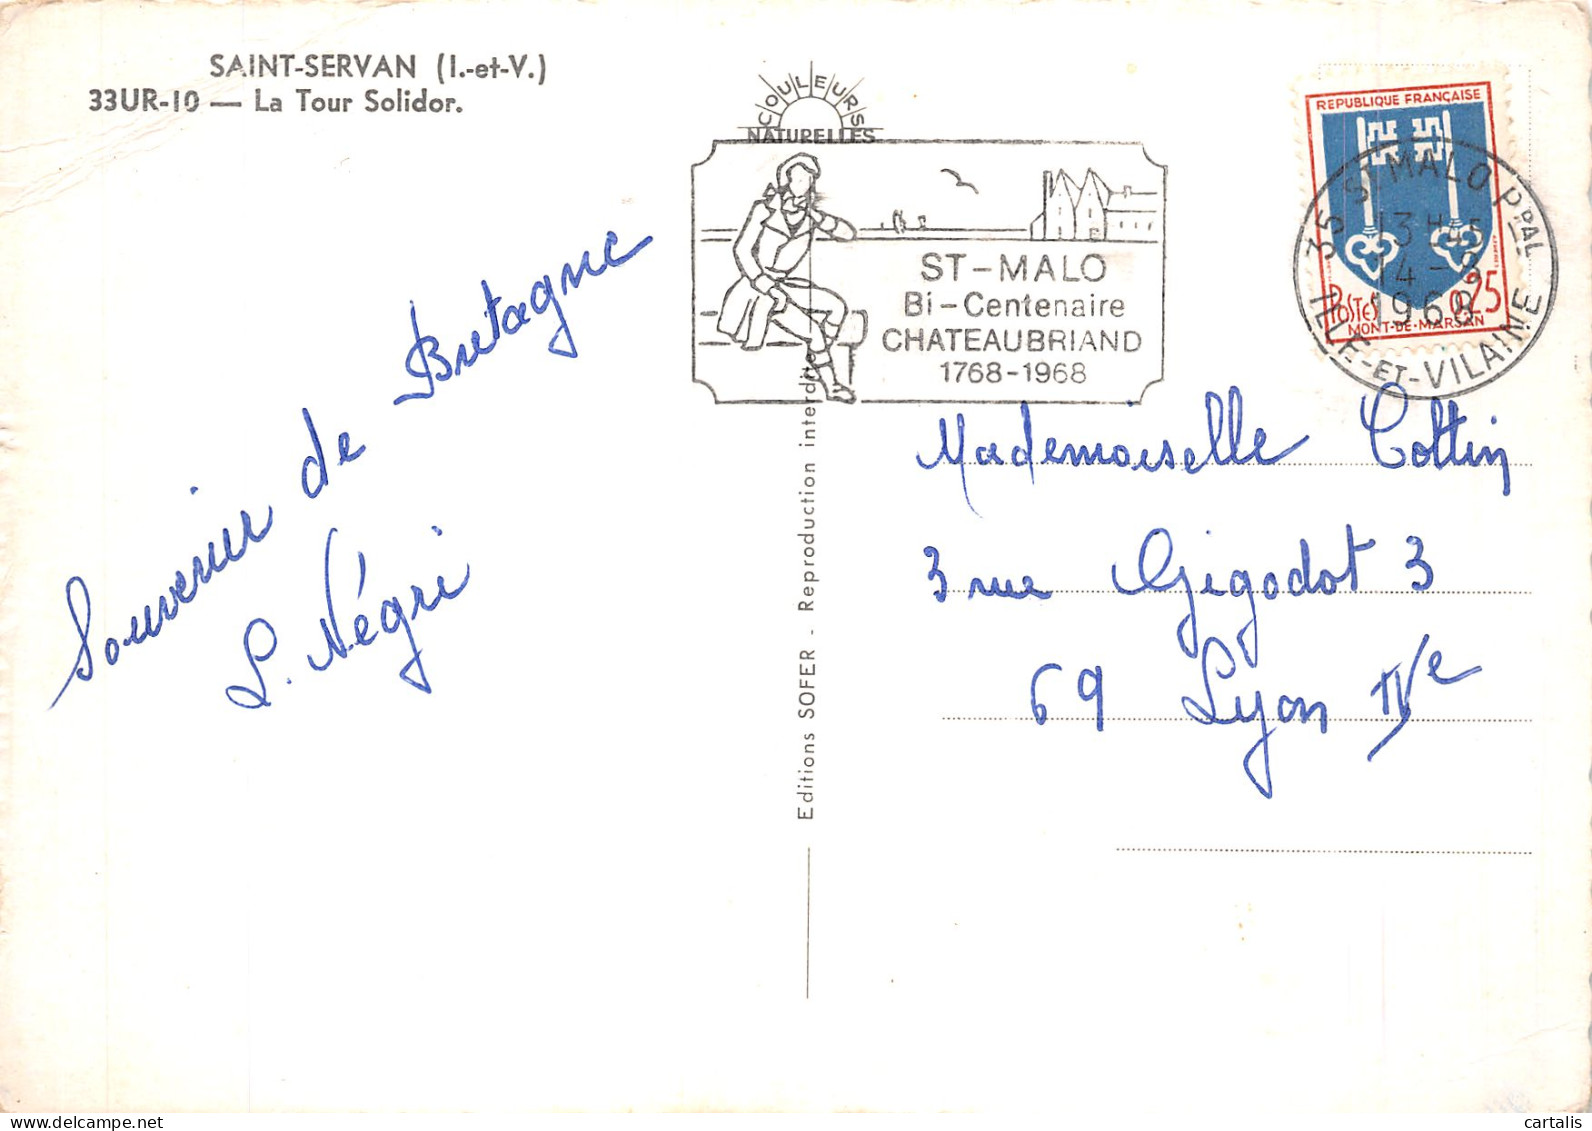 SAINT-SERVAN (I.-et-V.)
33UR-10 — La Tour Solidor.
COULEURS
NATURELLES
ST-MALO
Bi-Centenaire
CHATEAUBRIAND
1768-1968
REPUBLIQUE FRANÇAISE
POSTES 0,25
MONT-DE-MARSAN
35 ST MALO PPAL
13H45
14-9
1968
ILLE-ET-VILAINE
Souvenir de Bretagne
L. Négri
Editions SOFER - Reproduction interdite
Mademoiselle Cottin
3 rue Gigodot 3
69 Lyon IVe
cartalis